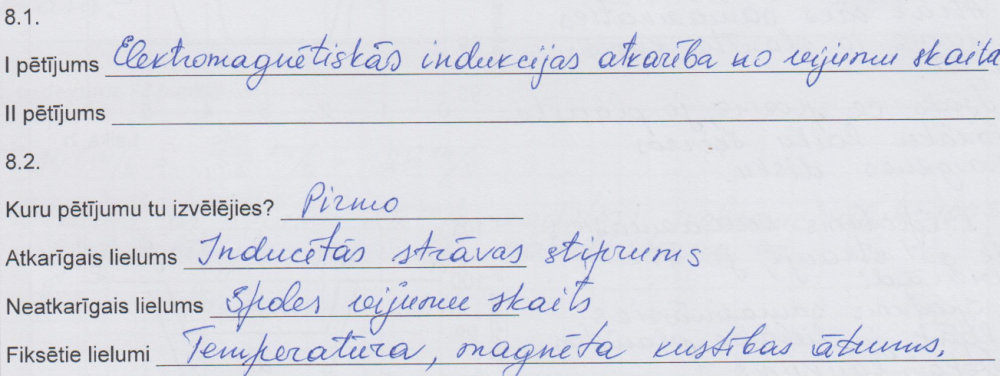 8.1.
I pētījums Elektromagnētiskās indukcijas atkarība no vijumu skaita
II pētījums
8.2.
Kuru pētījumu tu izvēlējies? Pirmo
Atkarīgais lielums Inducētās strāvas stiprums
Neatkarīgais lielums Spoles vijumu skaits
Fiksētie lielumi Temperatūra, magnēta kustības ātrums.